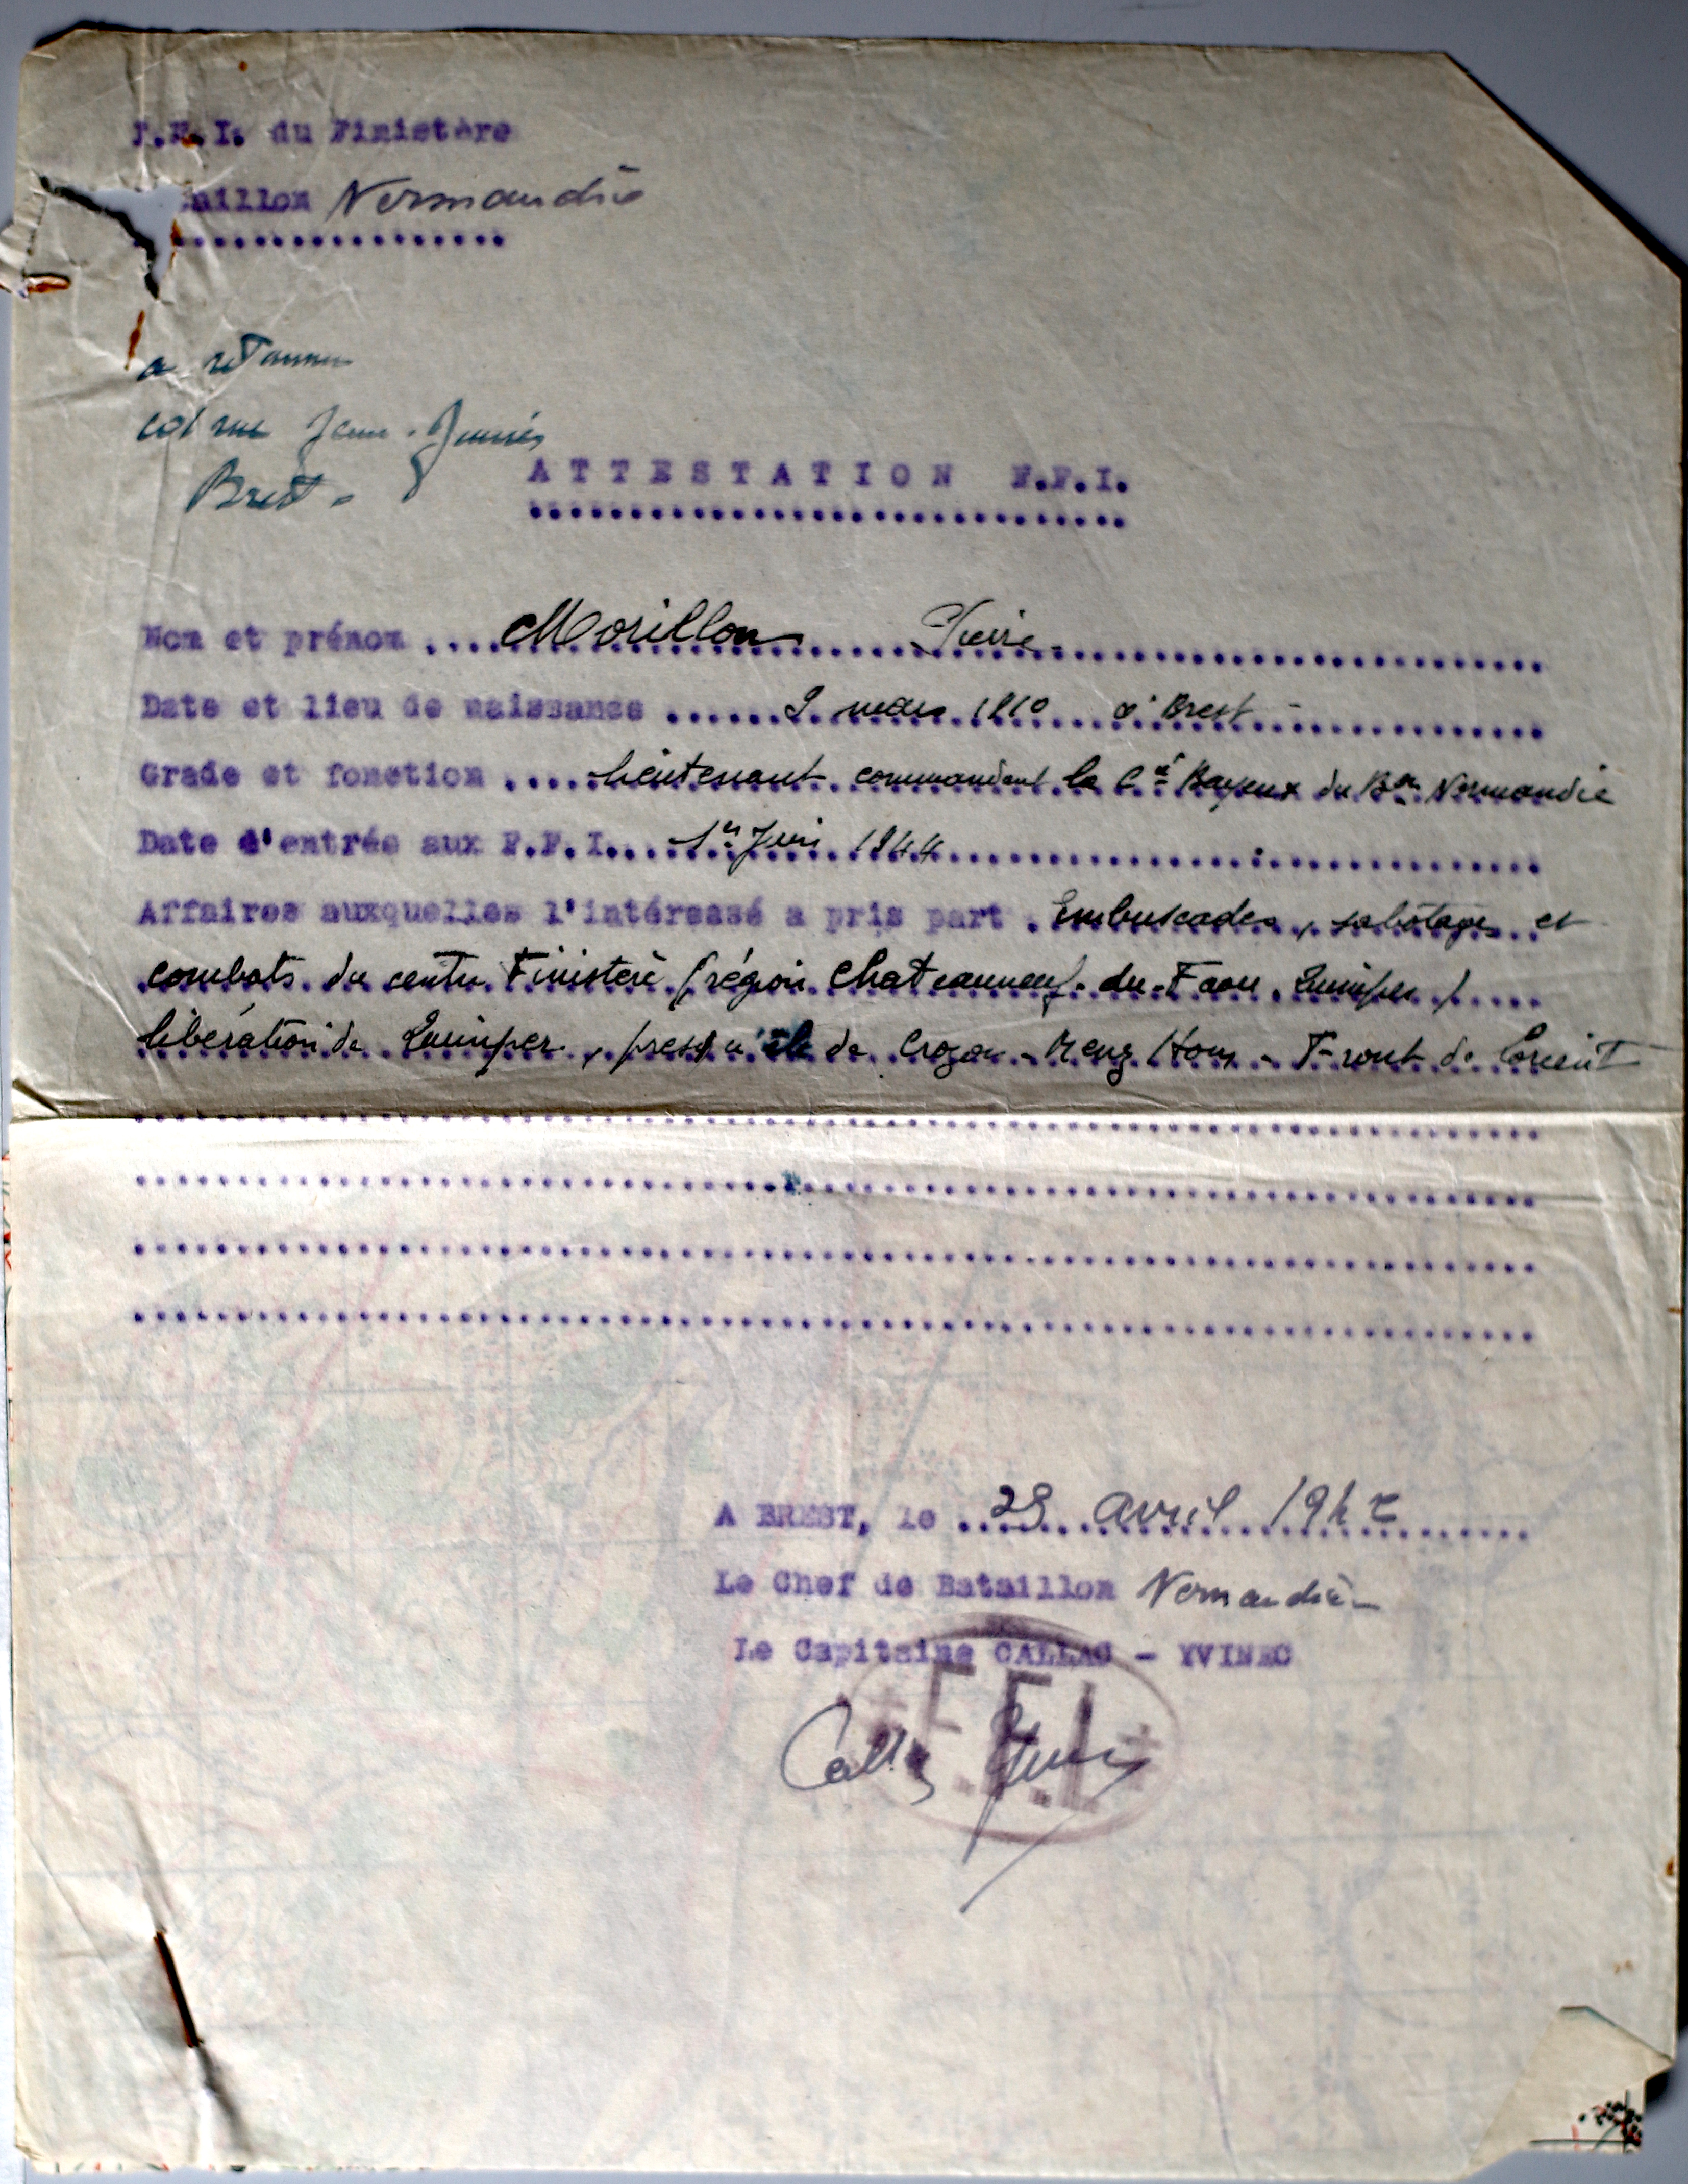 F.F.I. du Finistère
aillon Normandie
a retourner
rue Jean-Jaurès
Brest -
ATTESTATION F.F.I.
Nom et prénom .... Morillon Pierre
Date et lieu de naissance ...... 2 mars 1910 à Brest -
Grade et fonction .... Lieutenant commandant la Cie Bayeux du Bon Normandie
Date d'entrée aux F.F.I. 1er Juin 1944
Affaires auxquelles l'intéressé a pris part . Embuscades, sabotages et
combats du centre Finistère (région Chateauneuf-du-Faou, Quimper)
libération de Quimper, presqu'île de Crozon - Menez Hom - Front de Lorient
A BREST, le avril 194
Le Chef de Bataillon Normandie -
Le Capitaine CALLAC - YVINEC
F.F.I.
Callac Yvinec